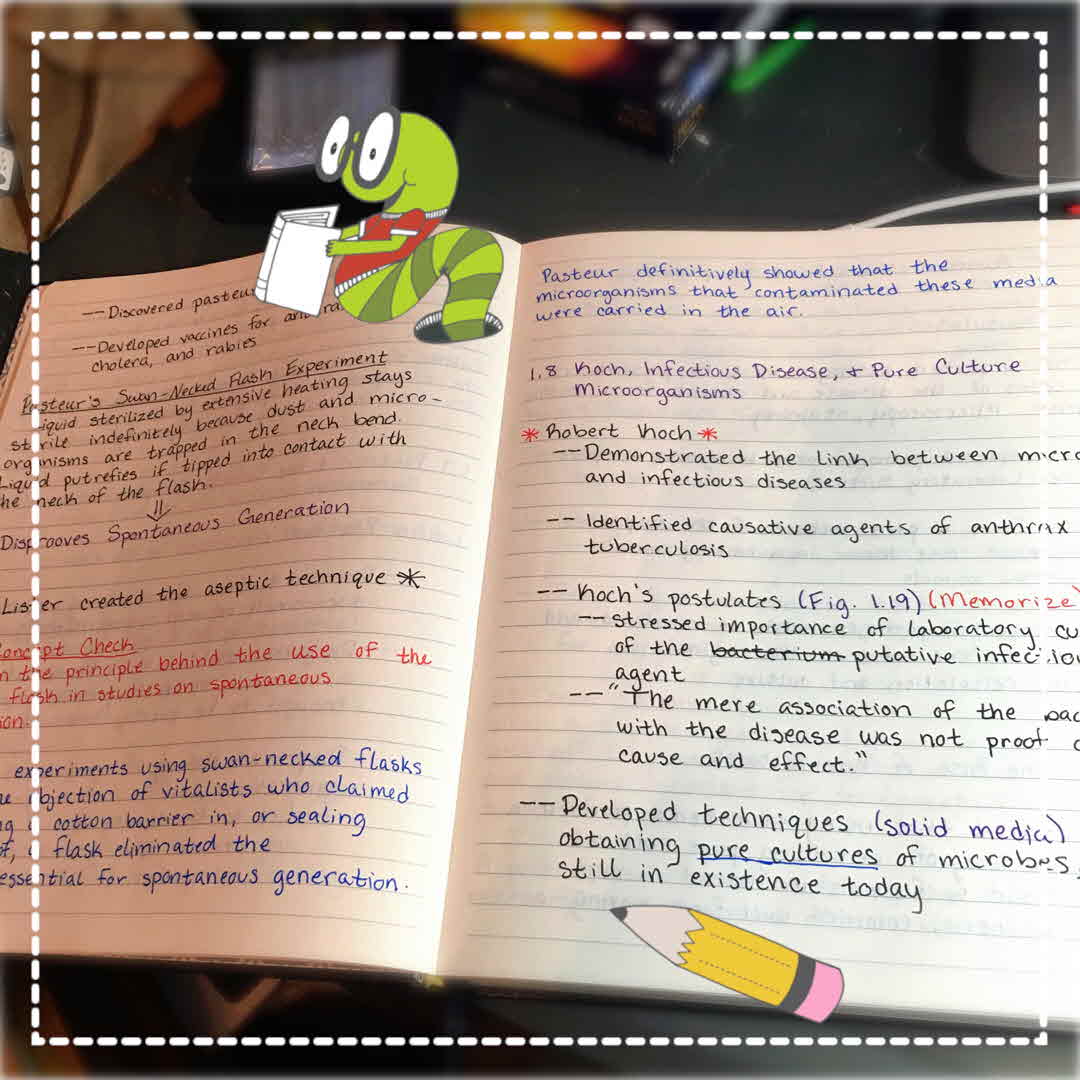 --Discovered
--Developed vaccines for
cholera, and rabies
Pasteur's Swan-Necked Flash Experiment
iquid sterilized by extensive heating stays
sterile indefinitely because dust and micro-
organisms are trapped in the neck bend.
Liquid putrefies if tipped into contact with
he neck of the flash.
⇓
Disprooves Spontaneous Generation
Lister created the aseptic technique *
Concept Check
n the principle behind the use of the
flash in studies on spontaneous
ion.
experiments using swan-necked flasks
objection of vitalists who claimed
cotton barrier in, or sealing
flask eliminated the
essential for spontaneous generation.
Pasteur definitively showed that the
microorganisms that contaminated these media
were carried in the air.
1.8 Koch, Infectious Disease, + Pure Culture
Microorganisms
* Robert Koch *
--Demonstrated the link between micro
and infectious diseases
-- Identified causative agents of anthrax
tuberculosis
-- Koch's postulates (Fig. 1.19) (Memorize)
-- stressed importance of laboratory cu
of the bacterium putative infectiou
agent
--"The mere association of the bac
with the disease was not proof
cause and effect."
-- Developed techniques (solid media)
obtaining pure cultures of microbes,
still in existence today